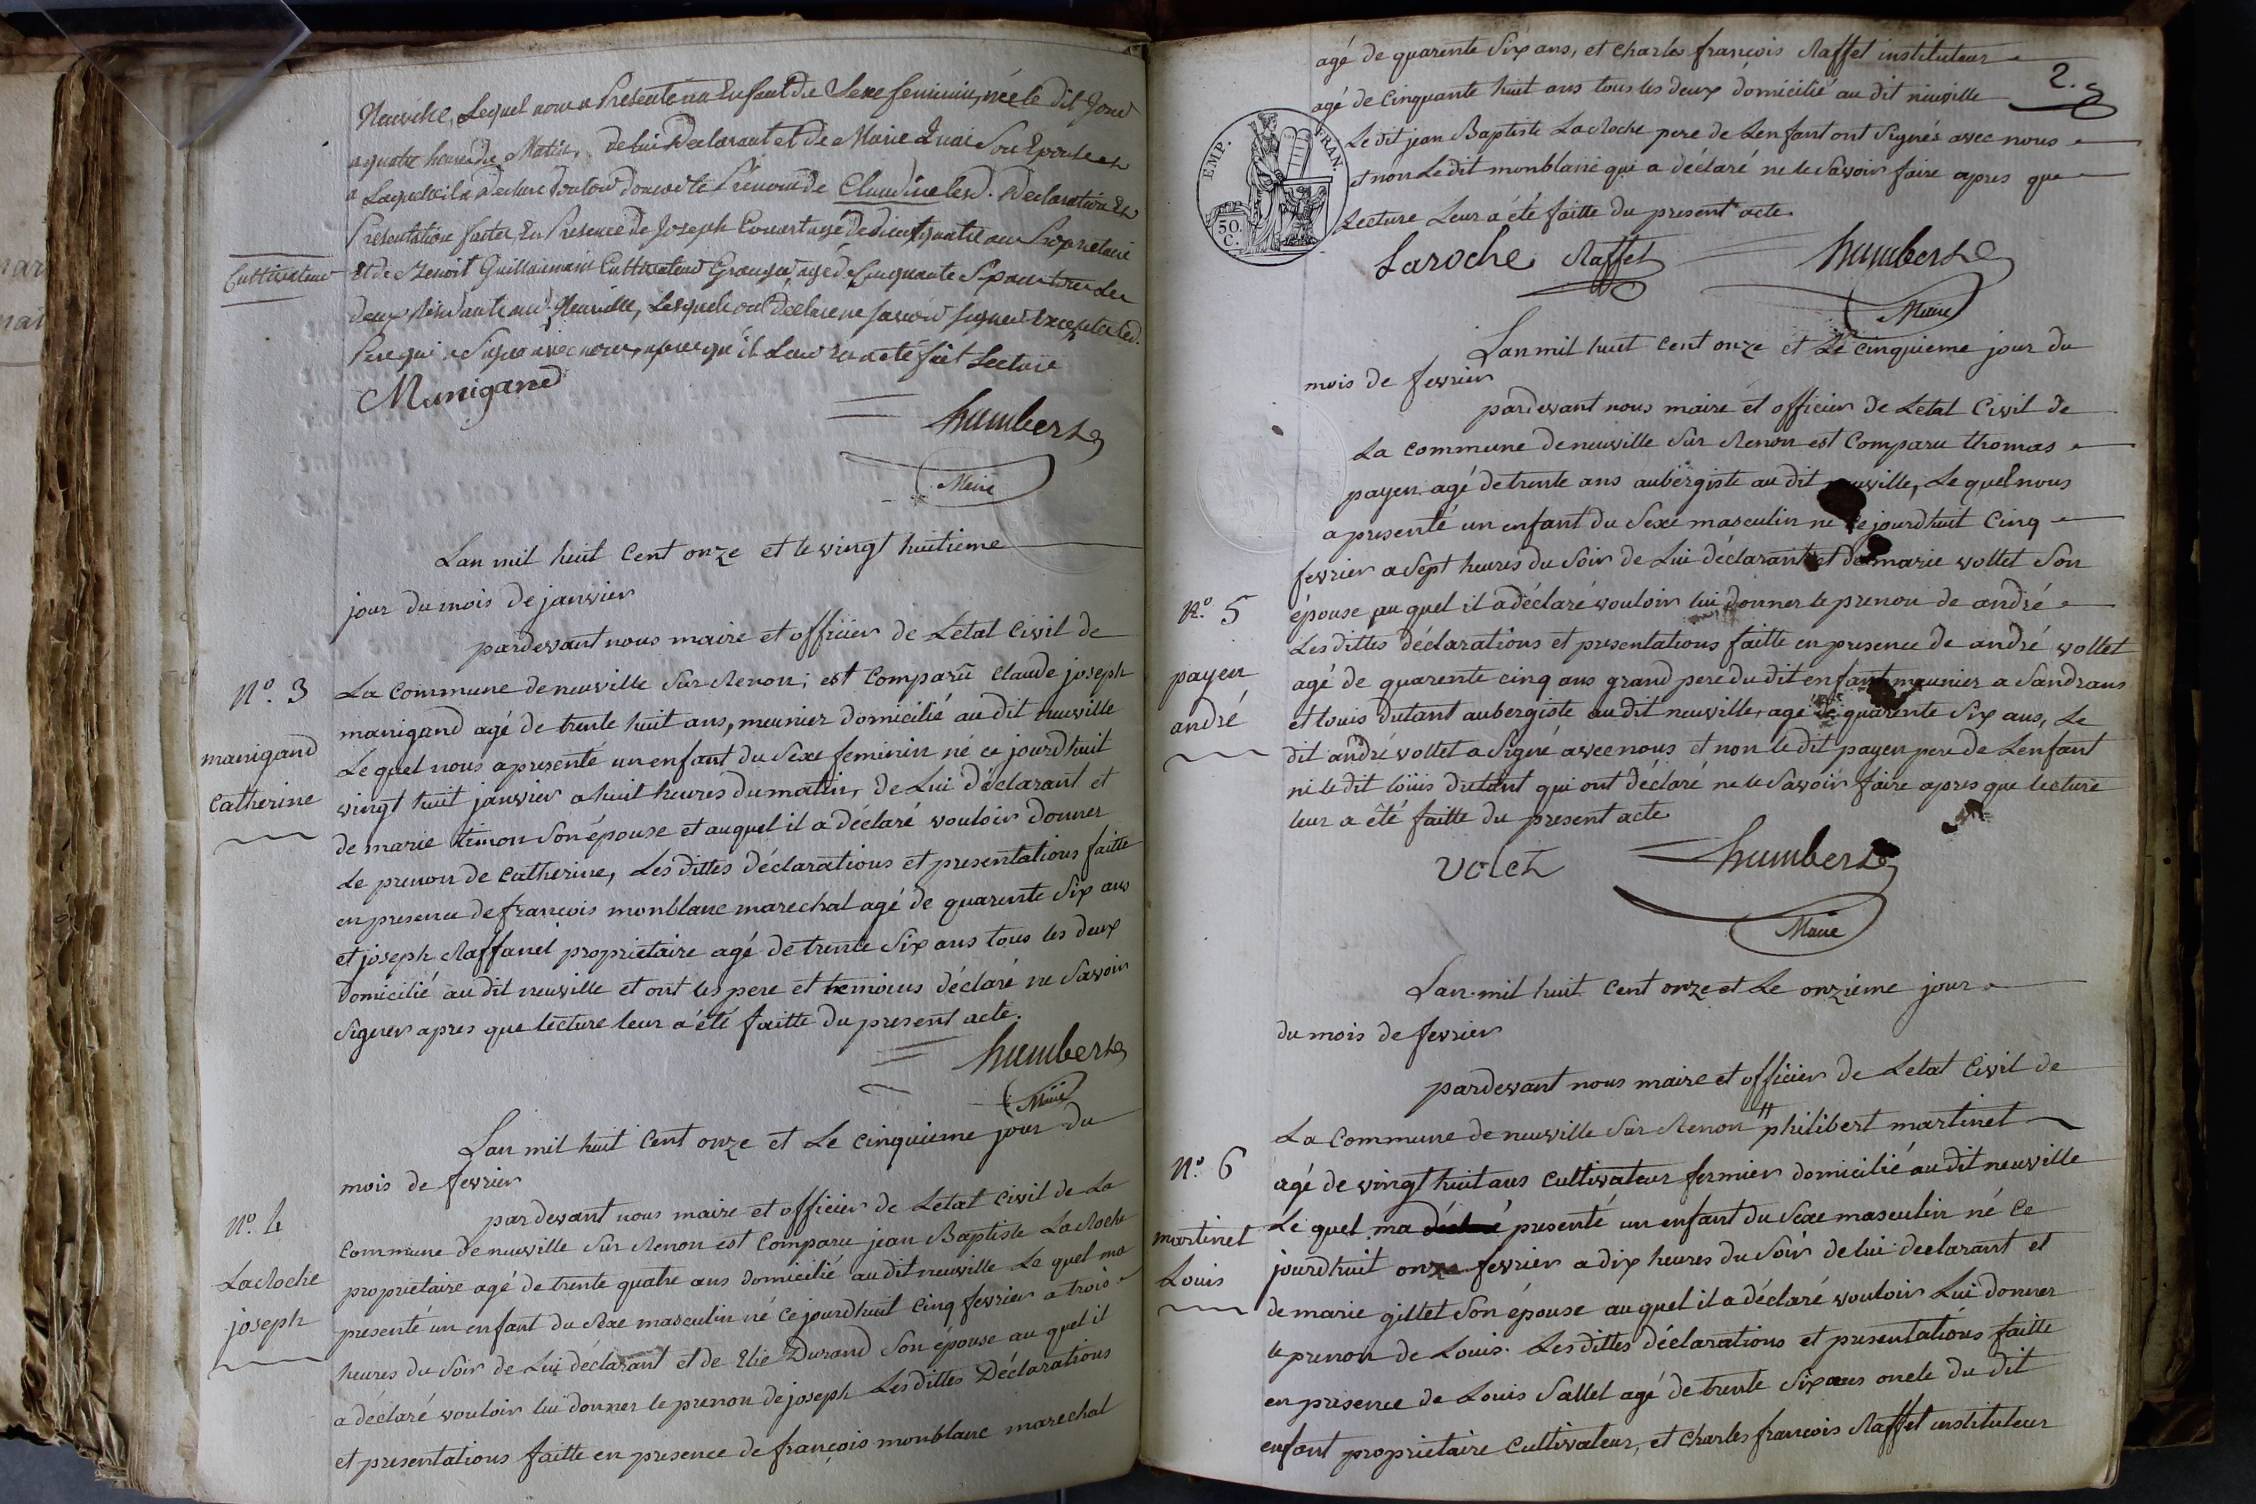 Neuville, Lequel nous a Présenté un Enfant du Sexe féminin, née le dit Jour
a quatre heures du Matin, de lui Déclarant et de Marie son Epouse et
a Laquelle il a Déclaré Vouloir donner le Prénom de Claudine Les d. Déclaration Et
Présentation faites En Présence de Joseph agé de Propriétaire
Cultivateur
Et de Benoit Guillaument Cultivateur Granger agé de Cinquante Sept ans tous Les
deux Résidants aud. Neuville, Lesquels ont Déclaré ne Savoir Signer Excepté Led.
Pere qui a Signé avec nous, apres qu'il Leur En a été fait Lecture
Manigand
humbert
Maire
Lan mil huit cent onze et le vingt huitieme
jour du mois de janvier
pardevant nous maire et officier de Letat Civil de
N.o 3
La commune de neuville Sur Renon; est comparu Claude joseph
manigand agé de trente huit ans, meunier domicilié au dit neuville
manigand
Le quel nous a presenté un enfant du Sexe feminin né ce jourdhuit
catherine
vingt huit janvier a huit heures du matin, de Lui déclarant et
de marie timon Son épouse et auquel il a déclaré vouloir donner
Le prenon de catherine, Les dittes déclarations et presentations faitte
en presence de françois monblanc marechal agé de quarente Six ans
et joseph Raffanel proprietaire agé de trente Six ans tous les deux
domicilié au dit neuville et ont les pere et temoins déclaré ne Savoir
Signer apres que lecture leur a été faitte du present acte.
humbert
Maire
Lan mil huit cent onze et Le cinquieme jour du
mois de fevrier
pardevant nous maire et officier de Letat civil de La
N.o 4
commune de neuville Sur Renon est comparu jean Baptiste LaRoche
LaRoche
proprietaire agé de trente quatre ans domicilié au dit neuville Le quel ma
joseph
presenté un enfant du Sexe masculin né ce jourdhuit cinq fevrier a trois
heures du Soir de Lui déclarant et de Elie Durand Son epouse au quel il
a déclaré vouloir lui donner le prenon de joseph Les dittes Déclarations
et presentations faitte en presence de françois monblanc marechal
agé de quarente Six ans, et charles françois Raffet instituteur
2.
agé de cinquante huit ans tous les deux domicilié au dit neuville
Le dit jean Baptiste LaRoche pere de Lenfant ont Signés avec nous
et non Le dit monblanc qui a déclaré ne le Savoir faire apres que
Lecture Leur a été faitte du present acte.
EMP. FRAN.
50. C.
Laroche Raffet humbert
Maire
Lan mil huit cent onze et Le cinquieme jour du
mois de fevrier
pardevant nous maire et officier de Letat Civil de
La commune de neuville Sur Renon est Comparu thomas
payen agé de trente ans aubergiste au dit neuville, Le quel nous
a presenté un enfant du Sexe masculin né ce jourdhuit cinq
fevrier a Sept heures du Soir de Lui déclarant et de marie vollet Son
N.o 5
épouse au quel il a déclaré vouloir lui donner le prenon de andré
Les dittes déclarations et presentations faitte en presence de andré vollet
payen
agé de quarente cinq ans grand pere du dit enfant meunier a Sandrans
andré
et louis dutant aubergiste au dit neuville, agé de quarente Six ans, Le
dit andré vollet a Signé avec nous et non le dit payen pere de Lenfant
ni le dit loüis dutant qui ont déclaré ne le Savoir faire apres que lecture
leur a été faitte du present acte
humbert
Maire
Lan mil huit cent onze et Le onziéme jour
du mois de fevrier
pardevant nous maire et officier de Letat Civil de
La Commune de neuville Sur Renon philibert martinet
N.o 6
agé de vingt huit ans cultivateur fermier domicilié au dit neuville
martinet
Le quel ma déclaré presenté un enfant du Sexe masculin né Ce
Louis
jourdhuit onze fevrier a dix heures du Soir de lui declarant et
de marie gillet Son épouse au quel il a déclaré vouloir Lui donner
le prenon de Louis. Les dittes déclarations et presentations faitte
en presence de Louis Sallet agé de trente Six ans oncle du dit
enfant proprietaire cultivateur, et charles françois Raffet instituteur